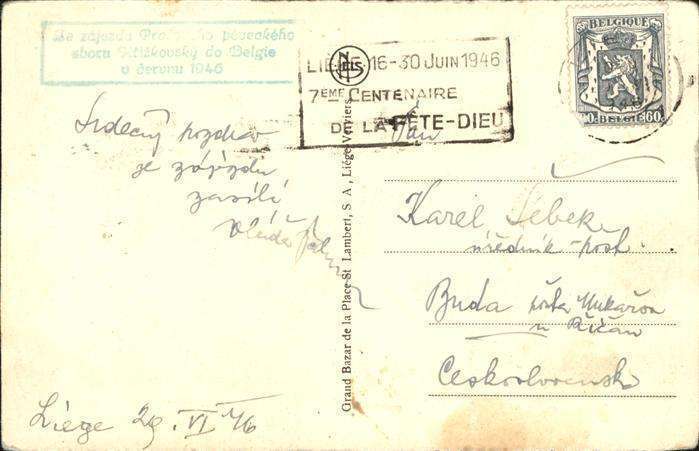 Ze zájezdu Pražského pěveckého
sboru Křížkovský do Belgie
v červnu 1946
LIEGE 16-30 JUIN 1946
7EME CENTENAIRE
DE LA FÊTE-DIEU
BELGIQUE
BELGIË 60c
Srdečný pozdrav
ze zájezdu
zasílá
Vláďa
Liége 29. VI. 46
Grand Bazar de la Place St Lambert, S. A., Liége-Verviers
Pan
Karel Šebek
úředník pošt
Buda pošta Mukařov
u Říčan
Československo